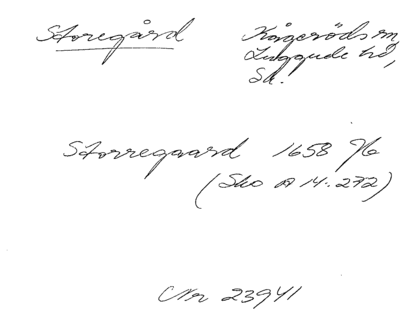 Storegård
Kågeröds sn,
Luggude hd,
Sk.
Storregaard 1658 7/6
(Sko A 14:272)
Nr 23941